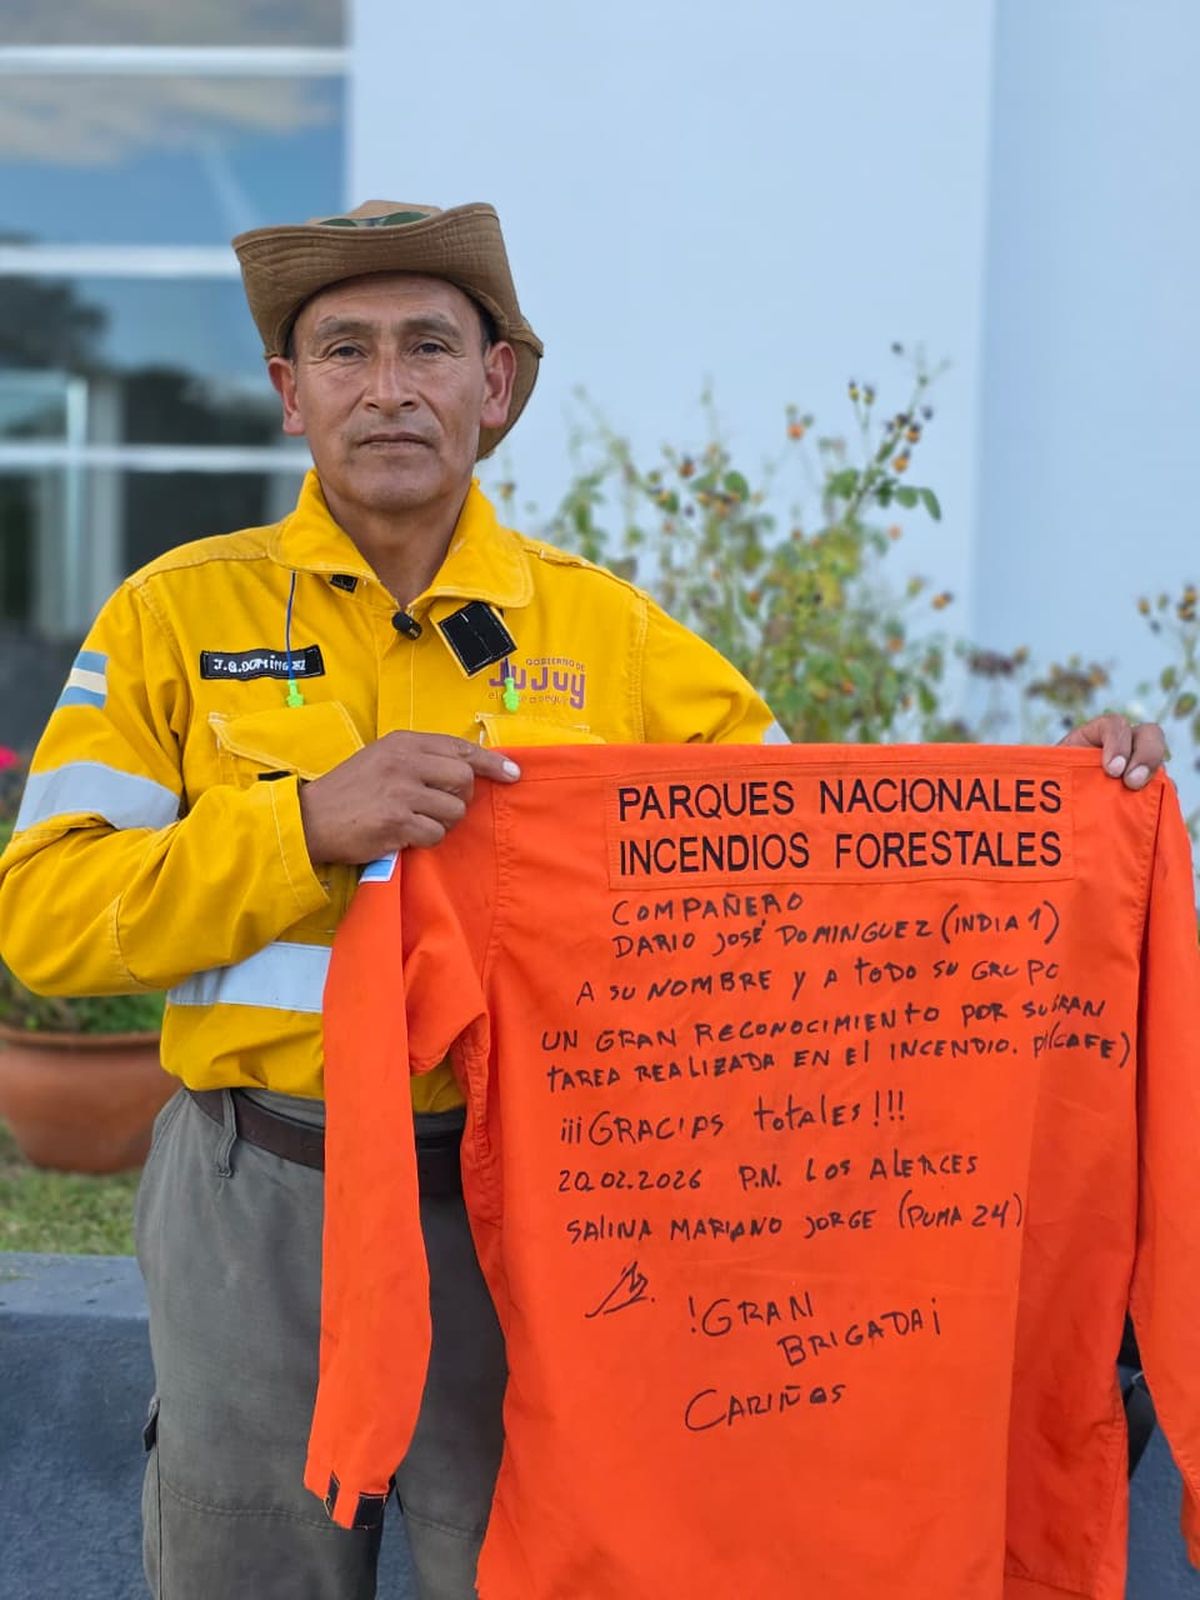 J.G.DOMiNGUEZ
GOBIERNO DE
JuJuy
PARQUES NACIONALES
INCENDIOS FORESTALES
COMPAÑERO
DARIO JOSÉ DOMINGUEZ (INDIA 1)
A SU NOMBRE Y A TODO SU GRUPO
UN GRAN RECONOCIMIENTO POR SU GRAN
TAREA REALIZADA EN El INCENDIO. P/(CAFE)
¡¡¡GRACIAS totAles!!!
20.02.2026 P.N. LOS ALERCES
SALINA MARIANO JORGE (PUMA 24)
!GRAN
BRIGADA¡
CARIÑOS